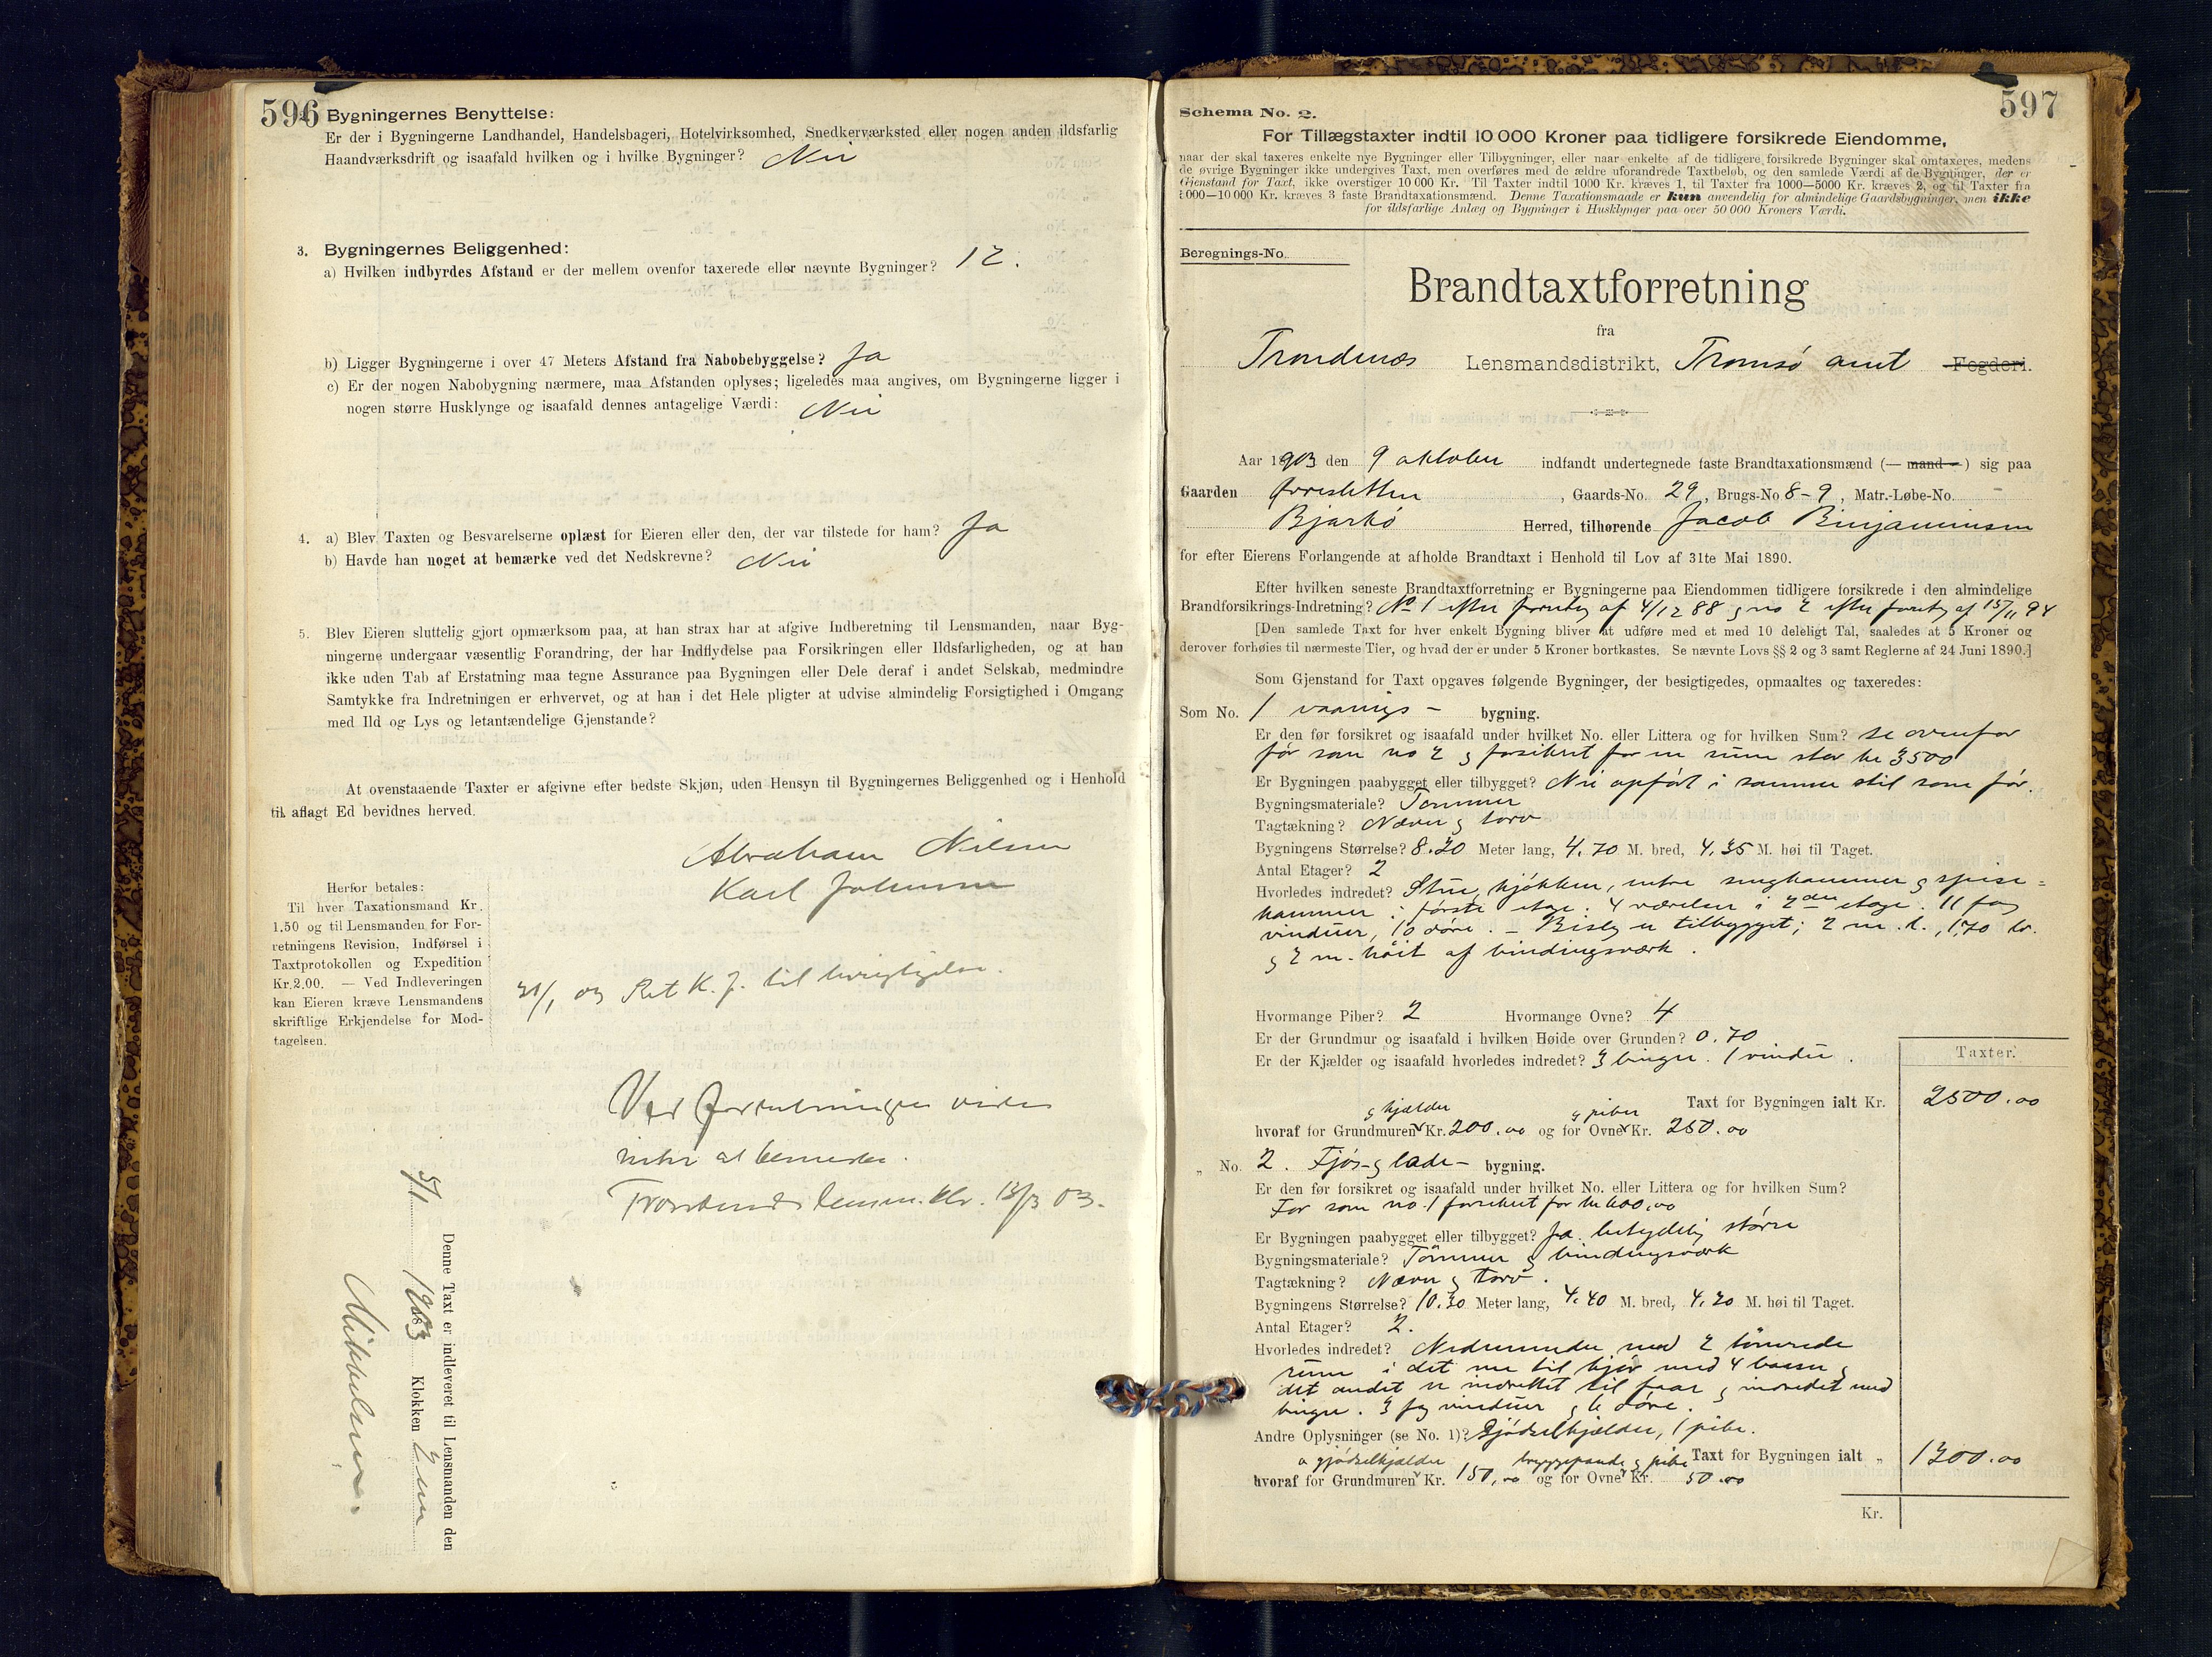 596
2. Bygningernes Benyttelse:
Er der i Bygningerne Landhandel, Handelsbageri, Hotelvirksomhed, Snedkerværksted eller nogen anden ildsfarlig
Haandværksdrift og isaafald hvilken og i hvilke Bygninger? Nei
3. Bygningernes Beliggenhed:
a) Hvilken indbyrdes Afstand er der mellem ovenfor taxerede eller nævnte Bygninger? 12.
b) Ligger Bygningerne i over 47 Meters Afstand fra Nabobebyggelse? Ja
c) Er der nogen Nabobygning nærmere, maa Afstanden oplyses; ligeledes maa angives, om Bygningerne ligger i
nogen større Husklynge og isaafald dennes antagelige Værdi: Nei
4. a) Blev Taxten og Besvarelserne oplæst for Eieren eller den, der var tilstede for ham? Ja
b) Havde han noget at bemærke ved det Nedskrevne? Nei
5. Blev Eieren sluttelig gjort opmærksom paa, at han strax har at afgive Indberetning til Lensmanden, naar Byg-
ningerne undergaar væsentlig Forandring, der har Indflydelse paa Forsikringen eller Ildsfarligheden, og at han
ikke uden Tab af Erstatning maa tegne Assurance paa Bygningen eller Dele deraf i andet Selskab, medmindre
Samtykke fra Indretningen er erhvervet, og at han i det Hele pligter at udvise almindelig Forsigtighed i Omgang
med Ild og Lys og letantændelige Gjenstande?
At ovenstaaende Taxter er afgivne efter bedste Skjøn, uden Hensyn til Bygningernes Beliggenhed og i Henhold
til aflagt Ed bevidnes herved.
Abraham Nilsen
Karl Johnsen
Herfor betales:
Til hver Taxationsmand Kr.
1.50 og til Lensmanden for For-
retningens Revision, Indførsel i
Taxtprotokollen og Expedition
Kr. 2.00. — Ved Indleveringen
kan Eieren kræve Lensmandens
skriftlige Erkjendelse for Mod-
tagelsen.
03 Ret K. J. til
Ved forretningen vides
intet at bemerke.
Trondenes lensm. ktr. 13/3 03.
Denne Taxt er indleveret til Lensmanden den
5/1 1903 Klokken 2 em
Mikkelsen.
597
Schema No. 2.
For Tillægstaxter indtil 10 000 Kroner paa tidligere forsikrede Eiendomme,
naar der skal taxeres enkelte nye Bygninger eller Tilbygninger, eller naar enkelte af de tidligere forsikrede Bygninger skal omtaxeres, medens
de øvrige Bygninger ikke undergives Taxt, men overføres med de ældre uforandrede Taxtbeløb, og den samlede Værdi af de Bygninger, der er
Gjenstand for Taxt, ikke overstiger 10 000 Kr. Til Taxter indtil 1000 Kr. kræves 1, til Taxter fra 1000—5000 Kr. kræves 2, og til Taxter fra
5000—10 000 Kr. kræves 3 faste Brandtaxationsmænd. Denne Taxationsmaade er kun anvendelig for almindelige Gaardsbygninger, men ikke
for ildsfarlige Anlæg og Bygninger i Husklynger paa over 50 000 Kroners Værdi.
Beregnings-No.
Brandtaxtforretning
fra
Trondenæs Lensmandsdistrikt, Tromsø amt Fogderi.
Aar 1903 den 9 oktober indfandt undertegnede faste Brandtaxationsmænd (— mand —) sig paa
Gaarden , Gaards-No. 29, Brugs-No 8-9, Matr.-Løbe-No. -
Bjarkø Herred, tilhørende Jacob Binjaminsen
for efter Eierens Forlangende at afholde Brandtaxt i Henhold til Lov af 31te Mai 1890.
Efter hvilken seneste Brandtaxtforretning er Bygningerne paa Eiendommen tidligere forsikrede i den almindelige
Brandforsikrings-Indretning? No 1 efter forretng af 4/12 88 og no 2 efter forretng af 15/11 94
[Den samlede Taxt for hver enkelt Bygning bliver at udføre med et med 10 deleligt Tal, saaledes at 5 Kroner og
derover forhøies til nærmeste Tier, og hvad der er under 5 Kroner bortkastes. Se nævnte Lovs §§ 2 og 3 samt Reglerne af 24 Juni 1890.]
Som Gjenstand for Taxt opgaves følgende Bygninger, der besigtigedes, opmaaltes og taxeredes:
Som No. 1 vaanings- bygning.
Er den før forsikret og isaafald under hvilket No. eller Littera og for hvilken Sum? se ovenfor
før som no 2 og forsikret for en sum stor kr 3500
Er Bygningen paabygget eller tilbygget? Nei opført i samme stil som før.
Bygningsmateriale? Tømmer
Tagtækning? Næver og torv
Bygningens Størrelse? 8.20 Meter lang, 4.70 M. bred, 4.35 M. høi til Taget.
Antal Etager? 2
Hvorledes indredet? Stue, kjøkken, entre sengkammer og spise-
kammer i første etage. 4 værelser i 2den etage. 11 fag
vinduer, 10 døre. - Bislag er tilbygget; 2 m. l., 1,70 br.
og 2 m. høit af bindingsværk.
Hvormange Piber? 2 Hvormange Ovne? 4
Er der Grundmur og isaafald i hvilken Høide over Grunden? 0.70
Er der Kjælder og isaafald hvorledes indredet? 3 binger. 1 vindu.
Taxter.
Taxt for Bygningen ialt Kr. 2500.00
og kjælder og piber
hvoraf for Grundmuren Kr. 200.00 og for Ovne Kr. 250.00
„ No. 2. Fjøs- og lade- bygning.
Er den før forsikret og isaafald under hvilket No. eller Littera og for hvilken Sum?
Før som no 1 forsikret for kr 600,00
Er Bygningen paabygget eller tilbygget? Ja betydelig større
Bygningsmateriale? Tømmer og bindingsværk
Tagtækning? Næver og torv.
Bygningens Størrelse? 10.30 Meter lang, 4.40 M. bred, 4.20 M. høi til Taget.
Antal Etager? 2.
Hvorledes indredet? med 2 tømrede
rum i det ene til kjør med 4 baase og
det andet er indrettet til faar og indredet med
binger. 3 fag vinduer og 6 døre.
Andre Oplysninger (se No. 1)? Gjødselkjælder, 1 pibe.
o gjødselkjælder bryggepande og pibe Taxt for Bygningen ialt „ 1300.00
hvoraf for Grundmuren Kr. 150,00 og for Ovne Kr. 50.00
Kr.